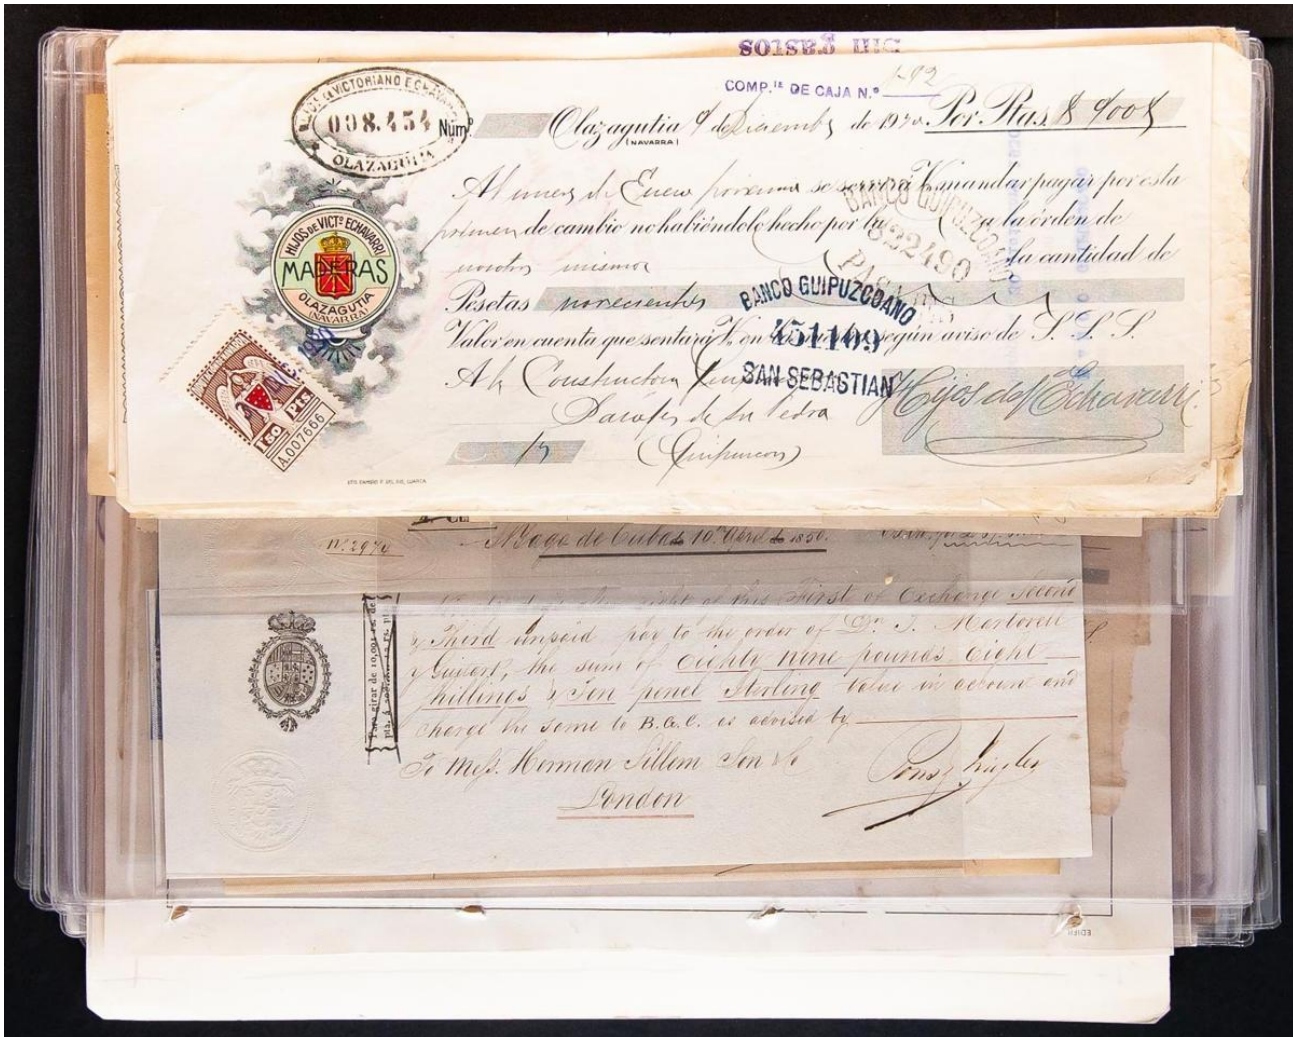 Sin gastos
COMP.TE DE CAJA N.º 1-92
HIJOS DE VICTORIANO ECHAVARRI
008.454
OLAZAGUTIA
Núm.º
Olazagutia 9 de Diciembre de 1930 Por Ptas. $ 900 $
(NAVARRA)
Al unes de Enero próximo se servirá V. mandar pagar por esta
primera de cambio no habiéndolo hecho por la a la órden de
nosotros mismos la cantidad de
Pesetas novecientas
Valor en cuenta que sentará V. en según aviso de S. S. S.
A la Constructora
Pasajes de San Pedro
(Guipuzcoa)
Hijos de V. Echavarri
BANCO GUIPUZCOANO
822490
PASAJES
BANCO GUIPUZCOANO
451109
SAN SEBASTIAN
HIJOS DE VICT.º ECHAVARRI
MADERAS
OLAZAGUTIA
(NAVARRA)
1'50 Pts
A.007666
nº 2974
de Cuba 10 April de 1850.
sight of this First of Exchange Second
y Third unpaid pay to the order of Dn. J. Martorell
the sum of Eighty nine pounds Eight
Shillings & Ten pence Sterling Value in account and
charge the same to B.G.C. as advised by
To Mess. Herman Sillem Son & Co
London
Para girar de 10,001 rs. de
EDIFIL